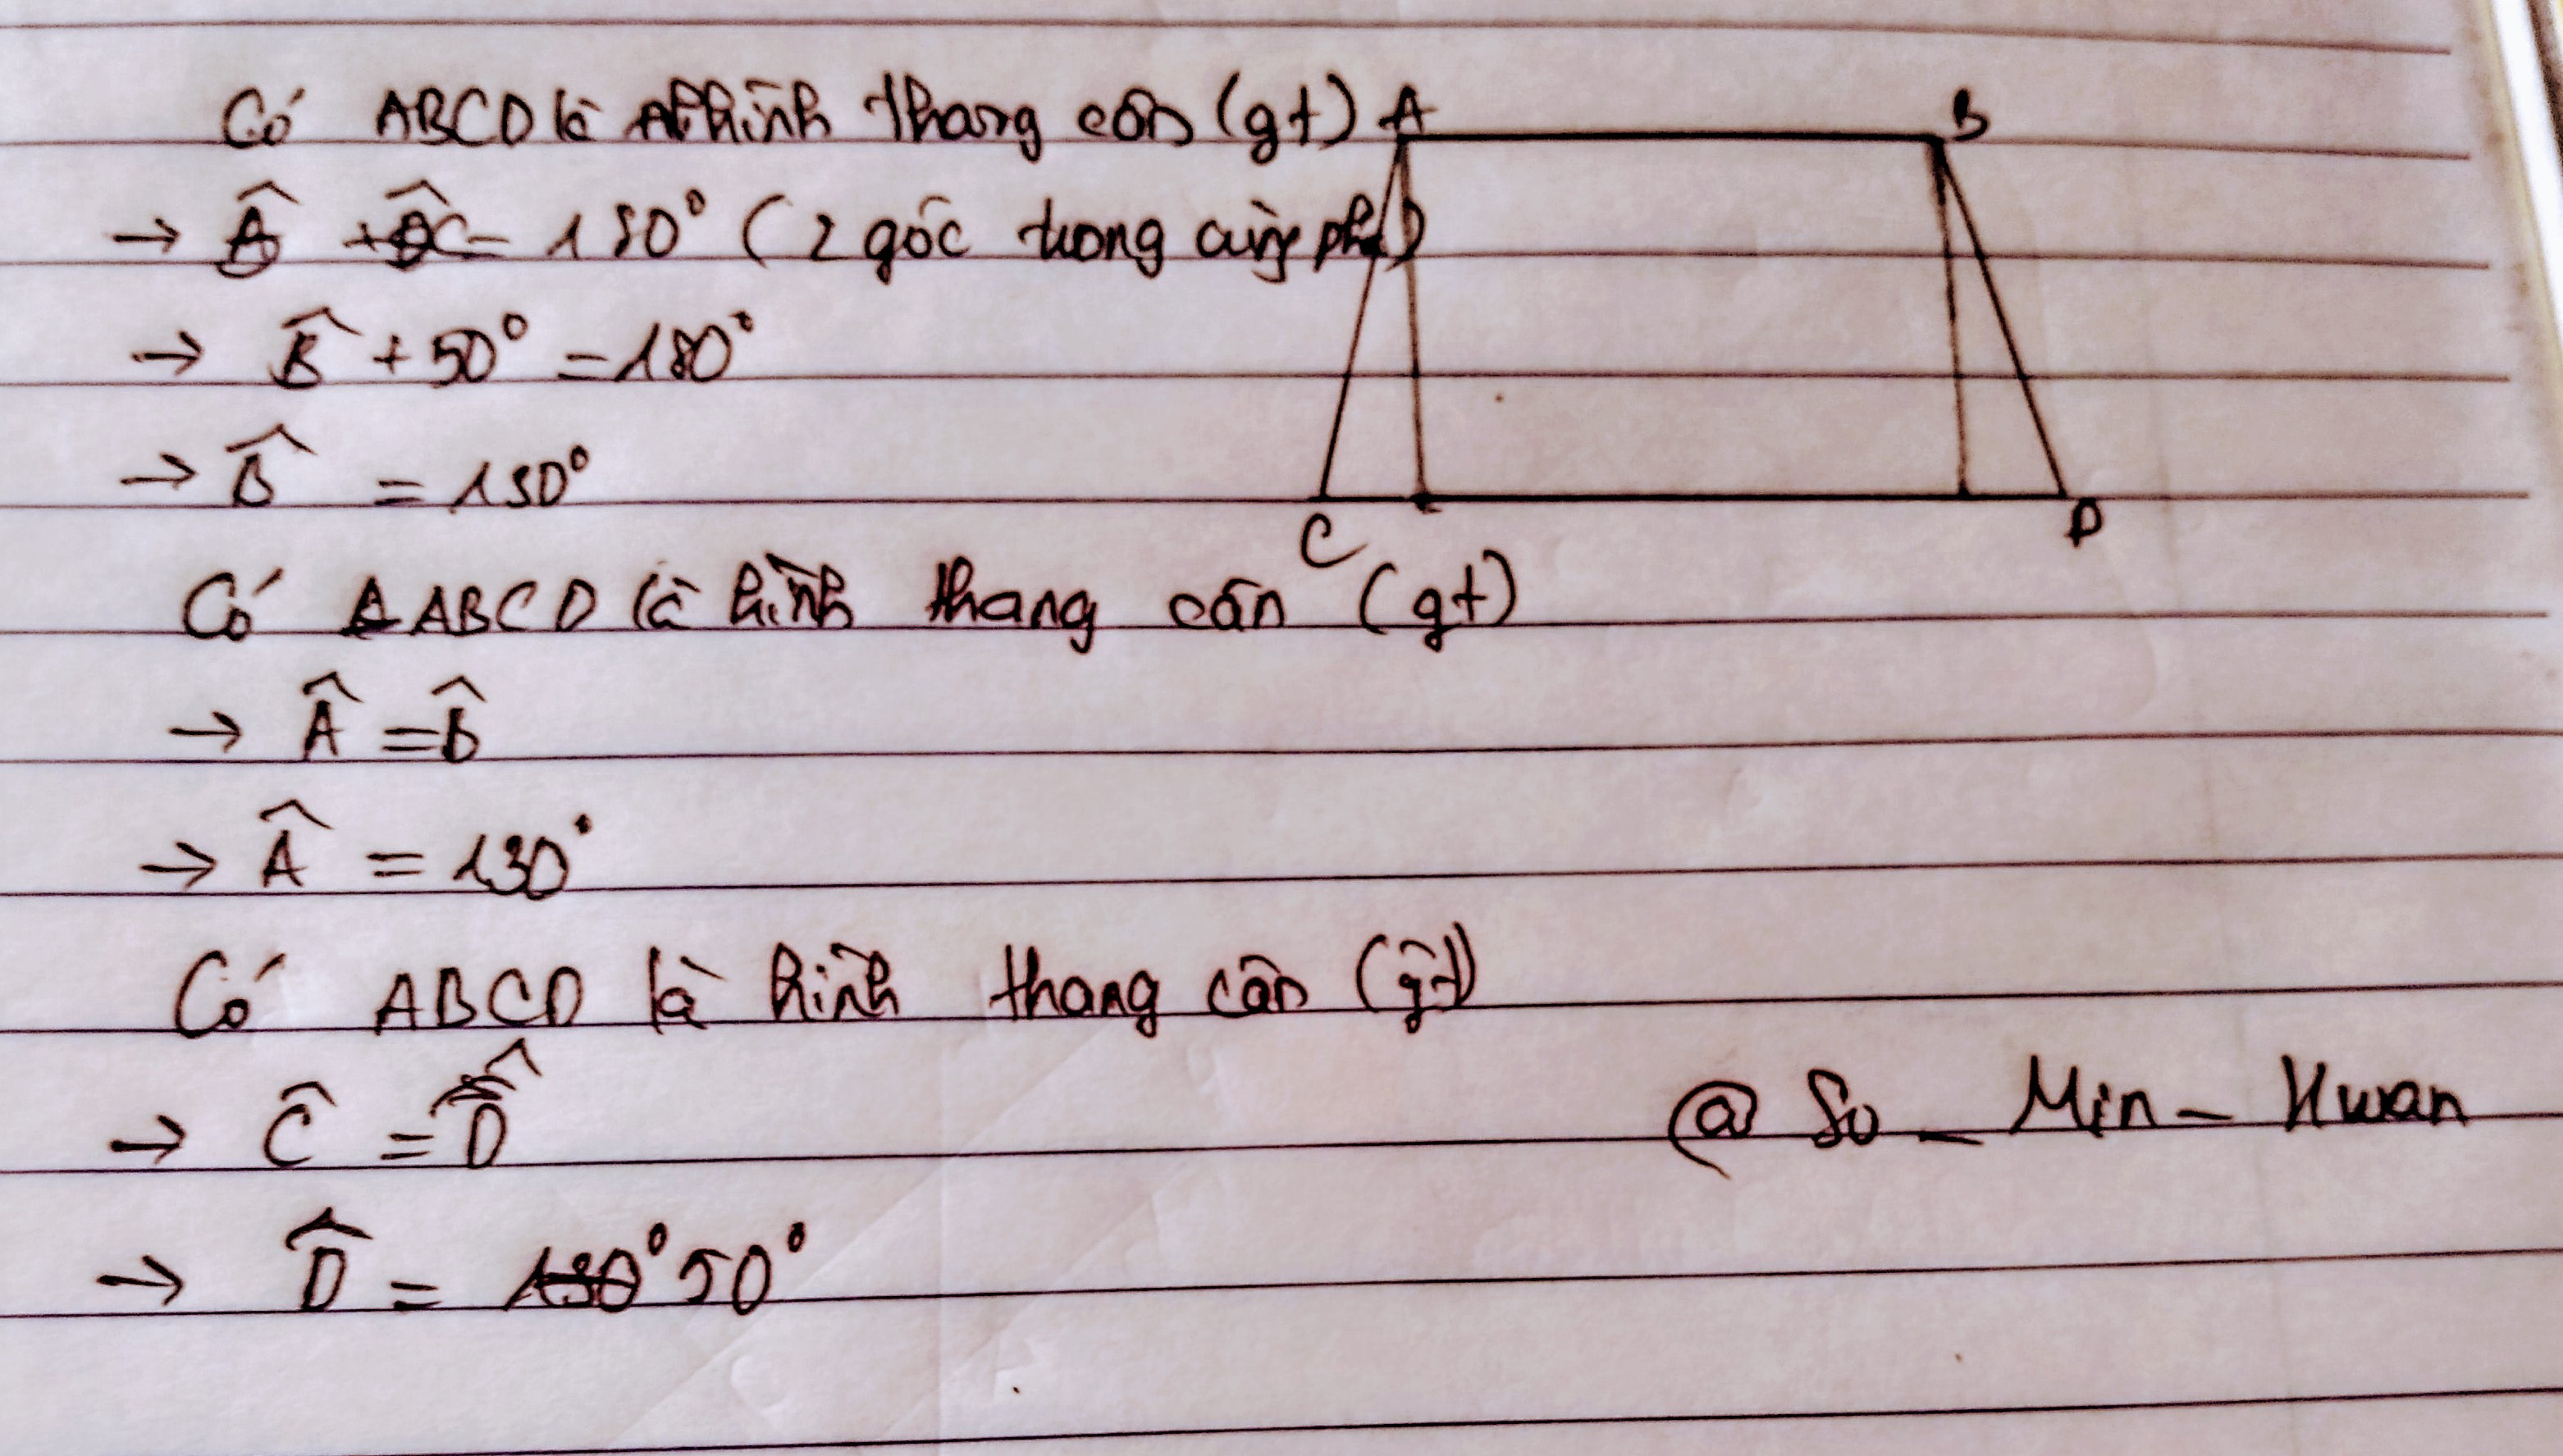 Có ABCD là hình thang cân (gt) A B
→ B̂ + Ĉ = 180° (2 góc trong cùng phía)
→ B̂ + 50° = 180°
→ B̂ = 130°
C D
Có ABCD là hình thang cân (gt)
→ Â = B̂
→ Â = 130°
Có ABCD là hình thang cân (gt)
→ Ĉ = D̂
@ Su _ Min _ Kwan
→ D̂ = 50°